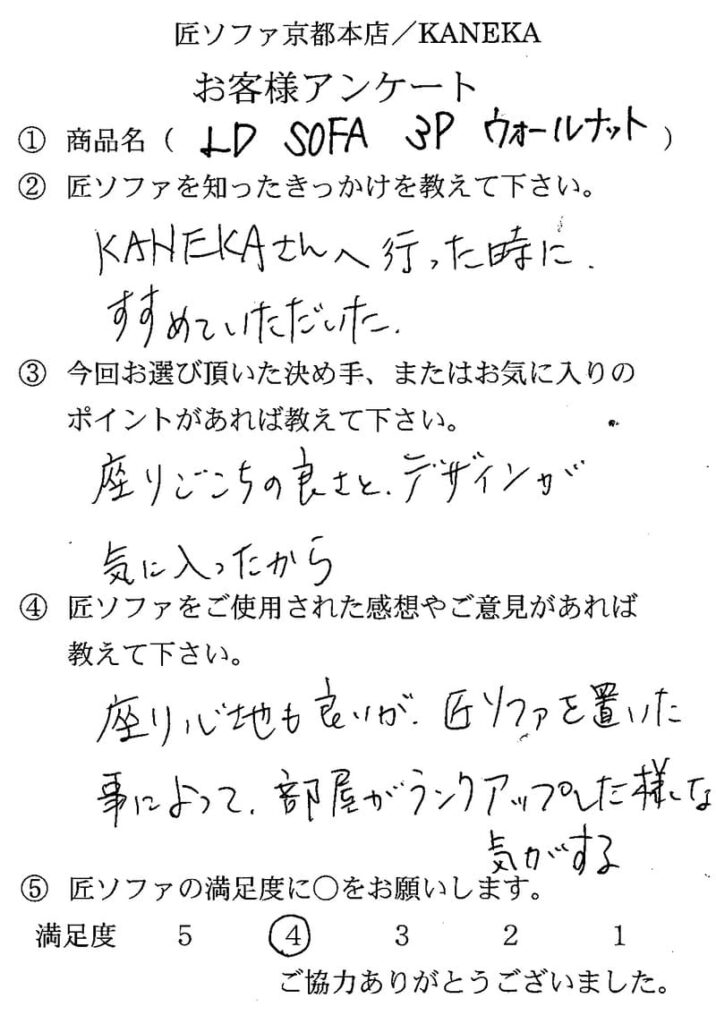 匠ソファ京都本店／KANEKA
お客様アンケート
① 商品名（ LD SOFA 3P ウォールナット ）
② 匠ソファを知ったきっかけを教えて下さい。
KANEKAさんへ行った時に、
すすめていただいた。
③ 今回お選び頂いた決め手、またはお気に入りの
ポイントがあれば教えて下さい。
座りごこちの良さと、デザインが
気に入ったから
④ 匠ソファをご使用された感想やご意見があれば
教えて下さい。
座り心地も良いが、匠ソファを置いた
事によって、部屋がランクアップした様な
気がする
⑤ 匠ソファの満足度に○をお願いします。
満足度 5 ④ 3 2 1
ご協力ありがとうございました。